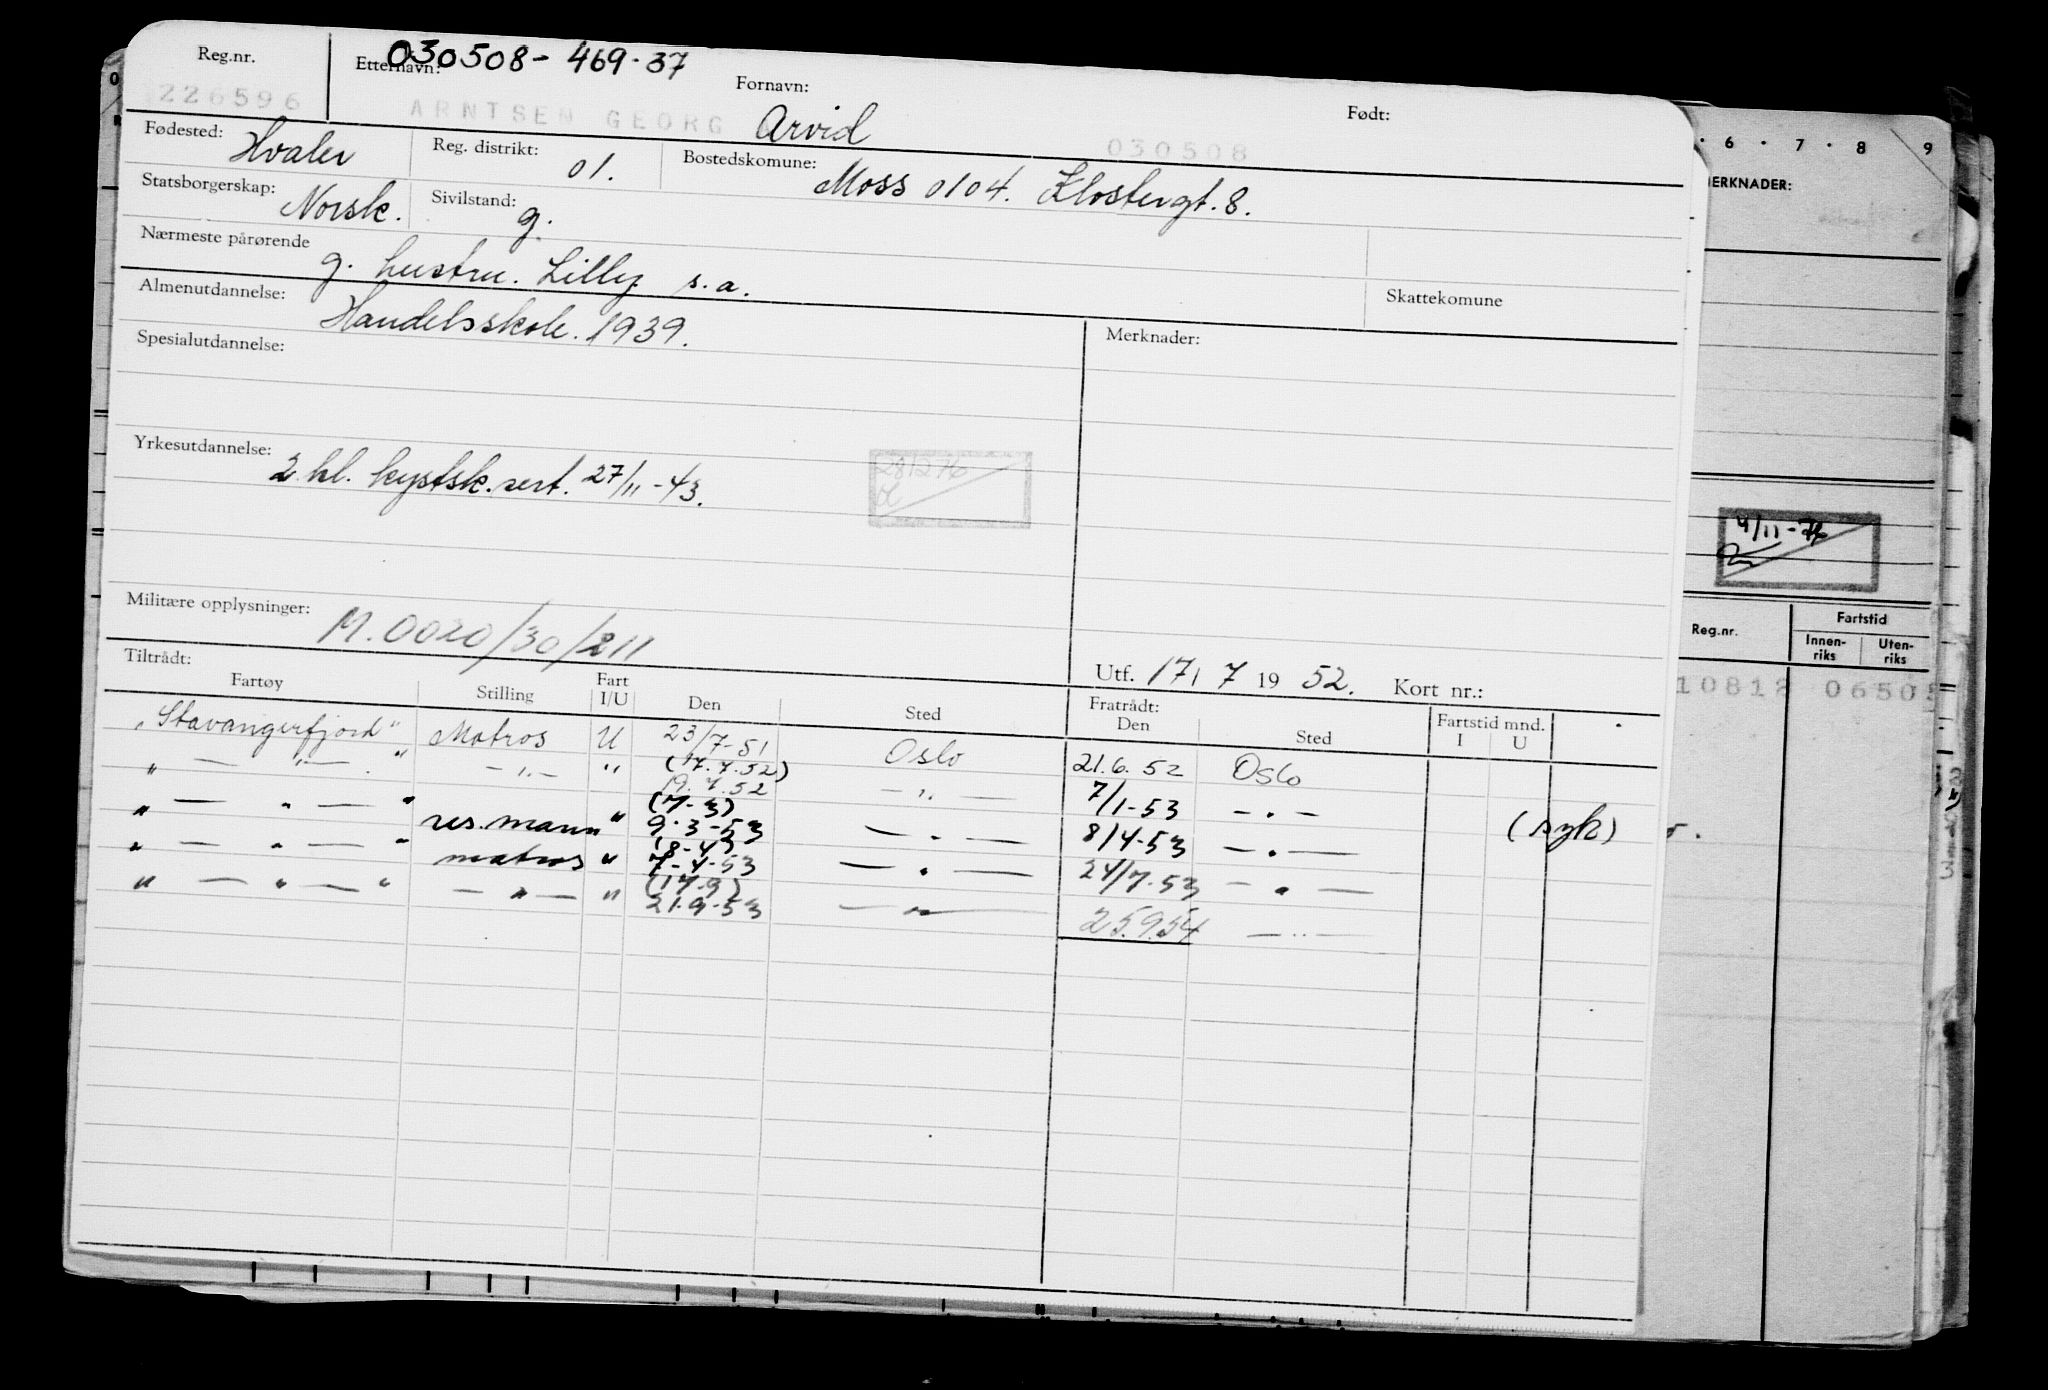 Reg.nr. Etternavn: 030508-469.37 Fornavn: Født:
226596 ARNTSEN GEORG Arvid 030508
Fødested: Hvaler Reg. distrikt: 01. Bostedskomune: Moss 0104. Klostergt. 8.
Statsborgerskap: Norsk. Sivilstand: g.
Nærmeste pårørende g. hustru. Lilly s.a.
Skattekomune
Almenutdannelse: Handelsskole. 1939.
Spesialutdannelse: Merknader:
Yrkesutdannelse: 2 kl. kystsk.sert. 27/11-43.
281276
Militære opplysninger: M.0020/30/211
Tiltrådt: Utf. 17/ 7 19 52. Kort nr.:
Fartøy Stilling Fart I/U Den Sted Fratrådt: Den Sted Fartstid mnd. I U
"Stavangerfjord" Matros U 23/7-51 Oslo 21.6.52 Oslo
" — " — " — " — " (17.7.52) 19.7.52 — " — 7/1-53 — " — (syk)
" — " — " res.mann " (7-3) 9-3-53 — " — 8/4-53 — " —
" — " — " matros " (8-4) 7-4-53 — " — 24/7-53 — " —
" — " — " — " — " (17-9) 21.9-53 — " — 25.9.54 — " —
6 · 7 · 8 9
MERKNADER:
4/11-76
Reg.nr. Fartstid
Innen-riks Uten-riks
10812 0650